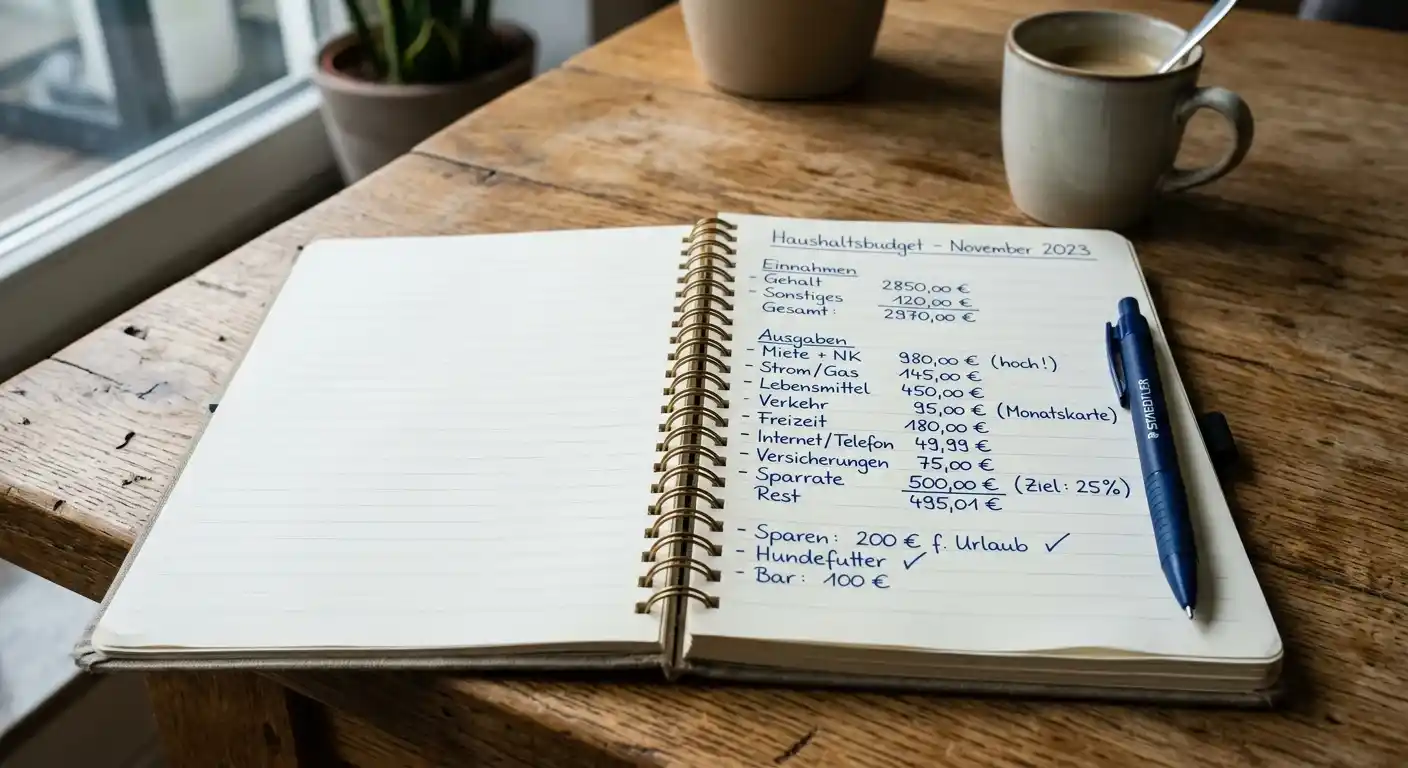 Haushaltsbudget - November 2023
Einnahmen
- Gehalt 2850,00 €
- Sonstiges 120,00 €
Gesamt: 2970,00 €
Ausgaben
- Miete + NK 980,00 € (hoch!)
- Strom/Gas 145,00 €
- Lebensmittel 450,00 €
- Verkehr 95,00 € (Monatskarte)
- Freizeit 180,00 €
- Internet/Telefon 49,99 €
- Versicherungen 75,00 €
- Sparrate 500,00 € (Ziel: 25%)
Rest 495,01 €
- Sparen: 200 € f. Urlaub ✓
- Hundefutter ✓
- Bar: 100 €
STAEDTLER